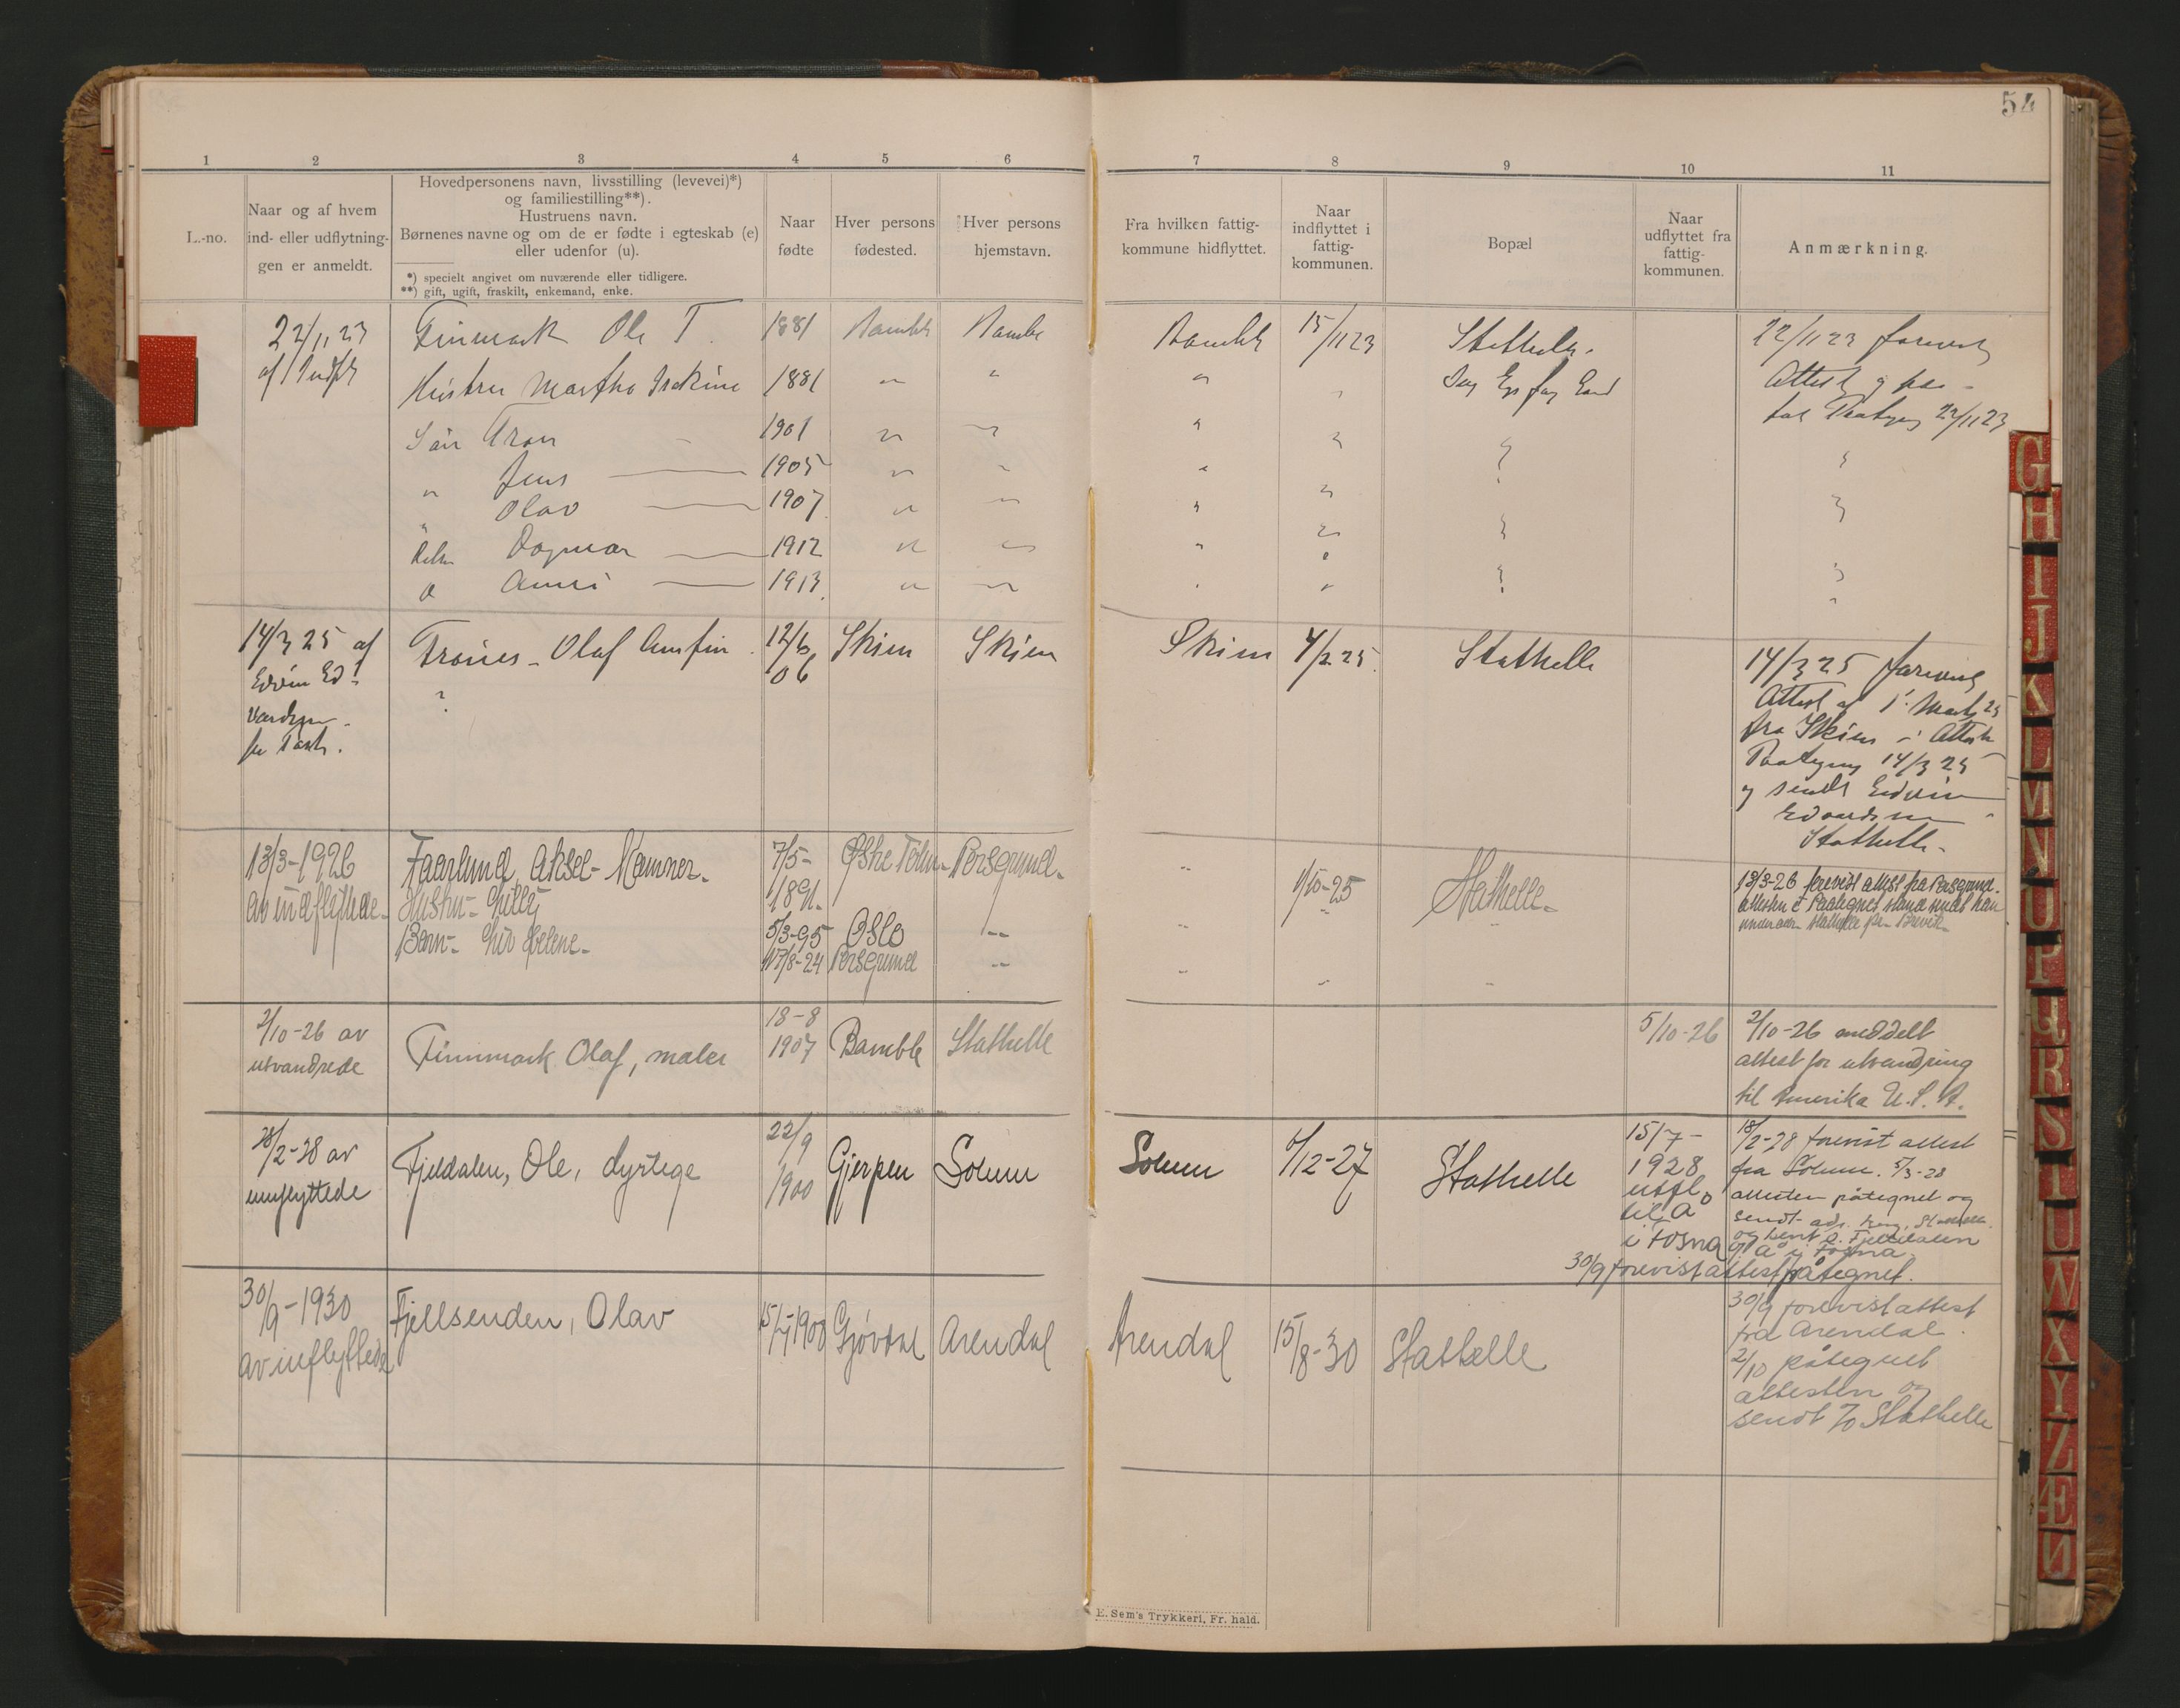 54
1 2 3 4 5 6 7 8 9 10 11
L.-no.
Naar og af hvem
ind- eller udflytnin-
gen er anmeldt.
Hovedpersonens navn, livsstilling (levevei)*)
og familiestilling**).
Hustruens navn.
Børnenes navne og om de er fødte i egteskab (e)
eller udenfor (u).
*) specielt angivet om nuværende eller tidligere.
**) gift, ugift, fraskilt, enkemand, enke.
Naar
fødte
Hver persons
fødested.
Hver persons
hjemstavn.
Fra hvilken fattig-
kommune hidflyttet.
Naar
indflyttet i
fattig-
kommunen.
Bopæl
Naar
udflyttet fra
fattig-
kommunen.
Anmærkning.
22/11 23
Finmark Ole T. 1881 Bamble Bamble Bamble 15/11 23 Stathelle.
22/11 23 forevist
Hustru Martha 1881 " " "
Attest
22/11 23
Søn Tron 1901 " " "
" Jens 1905 " " "
" Olav 1907 " " "
Dagmar 1912 " " "
" Anni 1913 " " "
14/3 25 af
Edvin Ed-
vardsen
Olaf Arnfin 12/6
06
Skien Skien Skien 4/2 25. Stathelle
14/3 25 forevist
Attest af 1. Marts 25
fra Skien - Attest
Paategnet 14/3 25
og sendt Edvin
Edvardsen
Stathelle.
13/3-1926
av indflyttede-
Faarlund, Aksel-
Hustru- Lilly
Barn- Liv Helene-
7/5-
1891.
5/3-95
17/8-24
Oslo
Porsgrund
Porsgrund-
1/10-25
Stathelle-
13/3-26 forevist attest fra Porsgrund.
2/10-26 av
utvandrede
Finnmark Olaf, maler
18-8
1907
Bamble Stathelle
5/10-26
2/10-26 meddelt
attest for utvandring
til Amerika U.S.A.
18/2-28 av
innflyttede
Fjeldalen, Ole, dyrlege
22/9
1900
Gjerpen Solum Solum 6/12-27 Stathelle
15/7-
1928
utfl.
til Å
i Fosna
18/2-28 forevist attest
fra Solum. 5/3-28
attesten påtegnet og
sendt adr. Stathelle.
og sendt O. Fjelldalen
Å i Fosna
30/9 forevist attest påtegnet.
30/9-1930
av inflyttede
Fjellsenden, Olav 1900 Gjøvdal Arendal Arendal 15/8-30 Stathelle
30/9 forevist attest
fra Arendal.
2/10 påtegnet
attesten og
sendt Stathelle
E. Sem's Trykkeri, Fr. hald.
G
H
I
J
K
L
M
N
O
P
Q
R
S
T
U
W
X
Y
Z
Æ
Ø